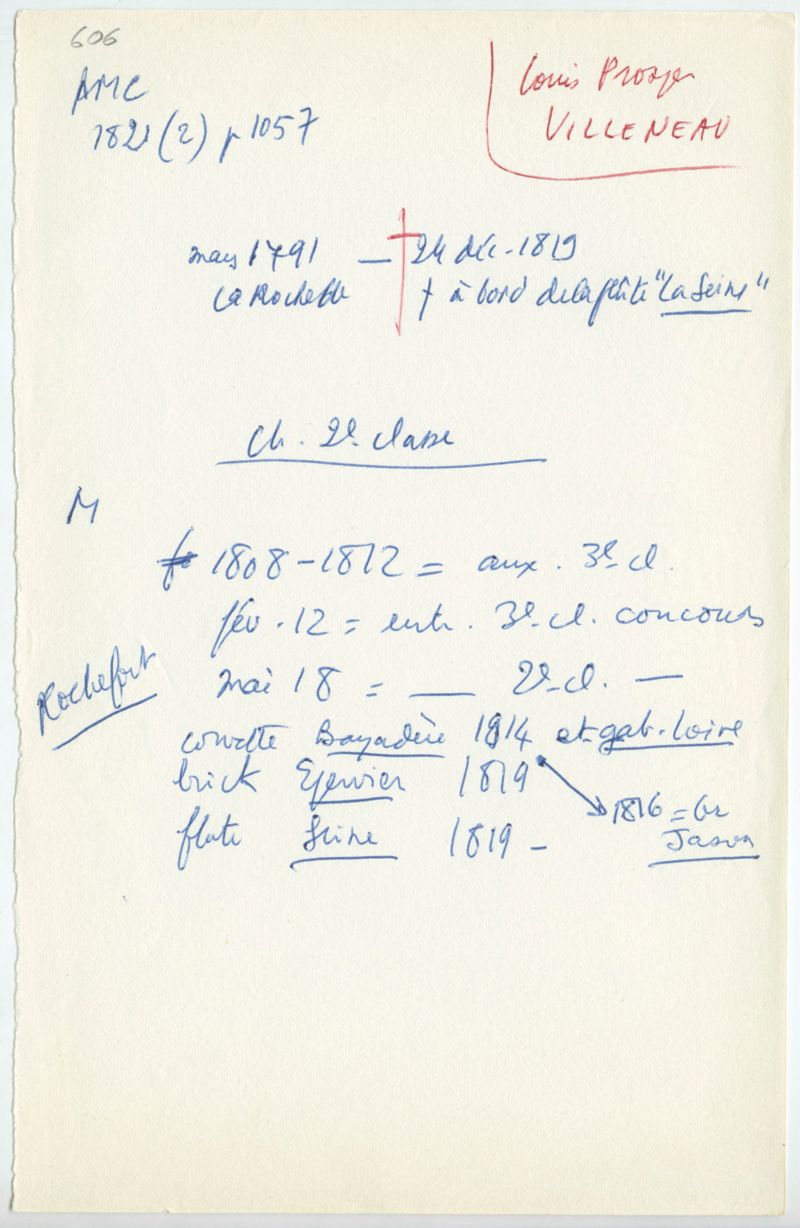 606
AMC
1821 (2) p 1057
Louis Prosper
VILLENEAU
mars 1791 — 24 déc. 1819
La Rochelle † à bord de la flûte "La Seine"
Ch. 2e classe
M
1808-1812 = aux. 3e cl.
fév. 12 = entr. 3e cl. concours
Rochefort
mai 18 = — 2e cl. —
corvette Bayadère 1814 et gab. Loire
brick Epervier 1819
1816 = br
flute Seine 1819 -
Jason